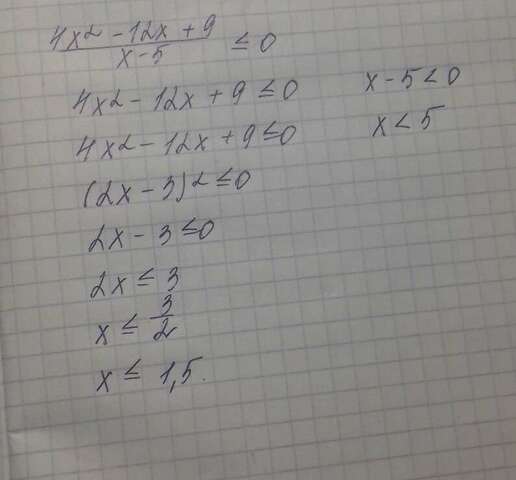 4x² - 12x + 9 / x - 5 ≤ 0
4x² - 12x + 9 ≤ 0
x - 5 < 0
4x² - 12x + 9 ≤ 0
x < 5
(2x - 3)² ≤ 0
2x - 3 ≤ 0
2x ≤ 3
x ≤ 3/2
x ≤ 1,5.